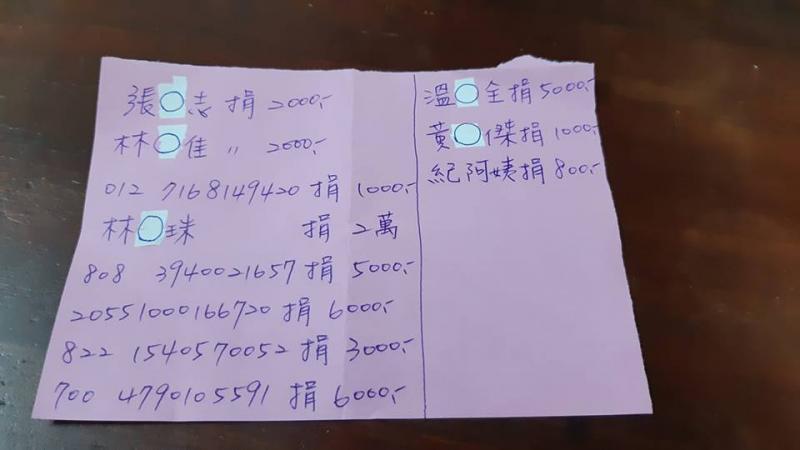 張○志捐2000,-
林○佳 〃 2000,-
012 7168149420 捐 1000,-
林○珠 捐 2萬
808 3940021657 捐 5000,-
20551000166720 捐 6000,-
822 1540570052 捐 3000,-
700 4790105591 捐 6000,-
溫○全捐5000,-
黃○傑捐1000,-
紀阿姨捐800,-